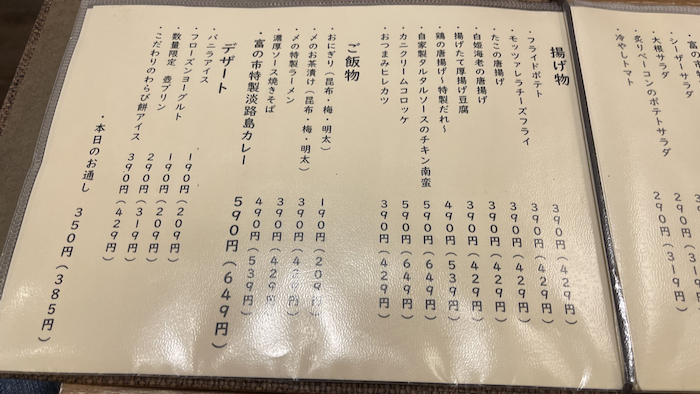 シーザーサラダ
・大根サラダ
・炙りベーコンのポテトサラダ 290円(319円)
・冷やしトマト 290円(319円)
揚げ物
・フライドポテト 390円(429円)
・モッツァレラチーズフライ 390円(429円)
・たこの唐揚げ 390円(429円)
・白姫海老の唐揚げ 390円(429円)
・揚げたて厚揚げ豆腐 390円(429円)
・鶏の唐揚げ〜特製だれ〜 490円(539円)
・自家製タルタルソースのチキン南蛮 590円(649円)
・カニクリームコロッケ 590円(649円)
・おつまみヒレカツ 390円(429円)
ご飯物
・おにぎり(昆布・梅・明太) 190円(209円)
・〆のお茶漬け(昆布・梅・明太) 390円(429円)
・〆の特製ラーメン 390円(429円)
・濃厚ソース焼きそば 490円(539円)
・富の市特製淡路島カレー 590円(649円)
デザート
・バニラアイス 190円(209円)
・フローズンヨーグルト 190円(209円)
・数量限定 壺プリン 290円(319円)
・こだわりのわらび餅アイス 390円(429円)
・本日のお通し 350円(385円)